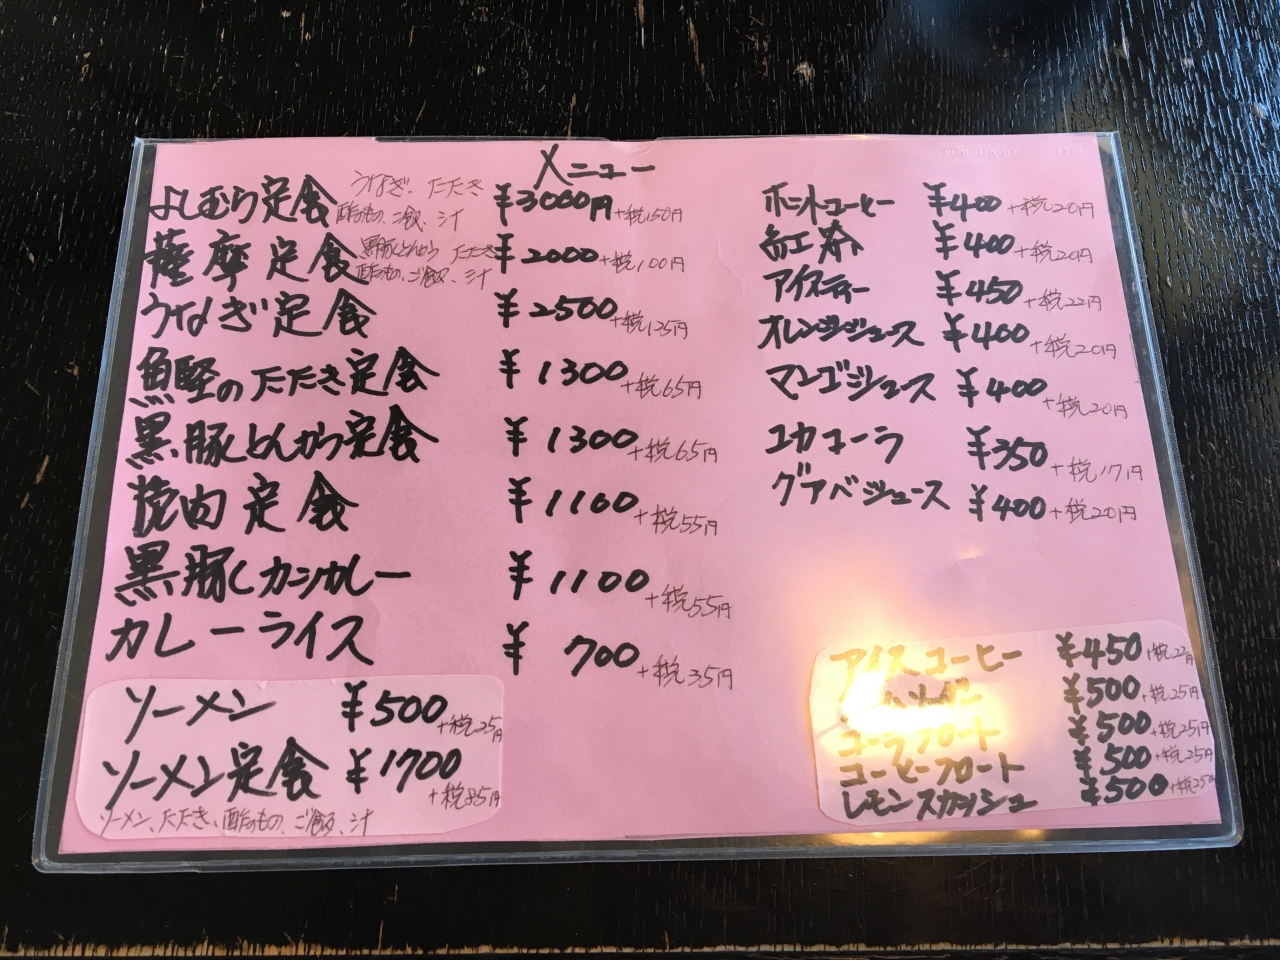 メニュー
よしむら定食 うなぎ、たたき 酢のもの、ご飯、汁 ¥3000円+税150円
薩摩定食 黒豚とんかつ たたき 酢のもの、ご飯、汁 ¥2000+税100円
うなぎ定食 ¥2500+税125円
鰹のたたき定食 ¥1300+税65円
黒豚とんかつ定食 ¥1300+税65円
焼肉定食 ¥1100+税55円
黒豚カツカレー ¥1100+税55円
カレーライス ¥700+税35円
ソーメン ¥500+税25円
ソーメン定食 ¥1700+税85円
ソーメン、たたき、酢のもの、ご飯、汁
ホットコーヒー ¥400+税20円
紅茶 ¥400+税20円
アイスティー ¥450+税22円
オレンジジュース ¥400+税20円
マンゴジュース ¥400+税20円
コカコーラ ¥350+税17円
グアバジュース ¥400+税20円
アイスコーヒー ¥450+税22円
¥500+税25円
コーラフロート ¥500+税25円
コーヒーフロート ¥500+税25円
レモンスカッシュ ¥500+税25円